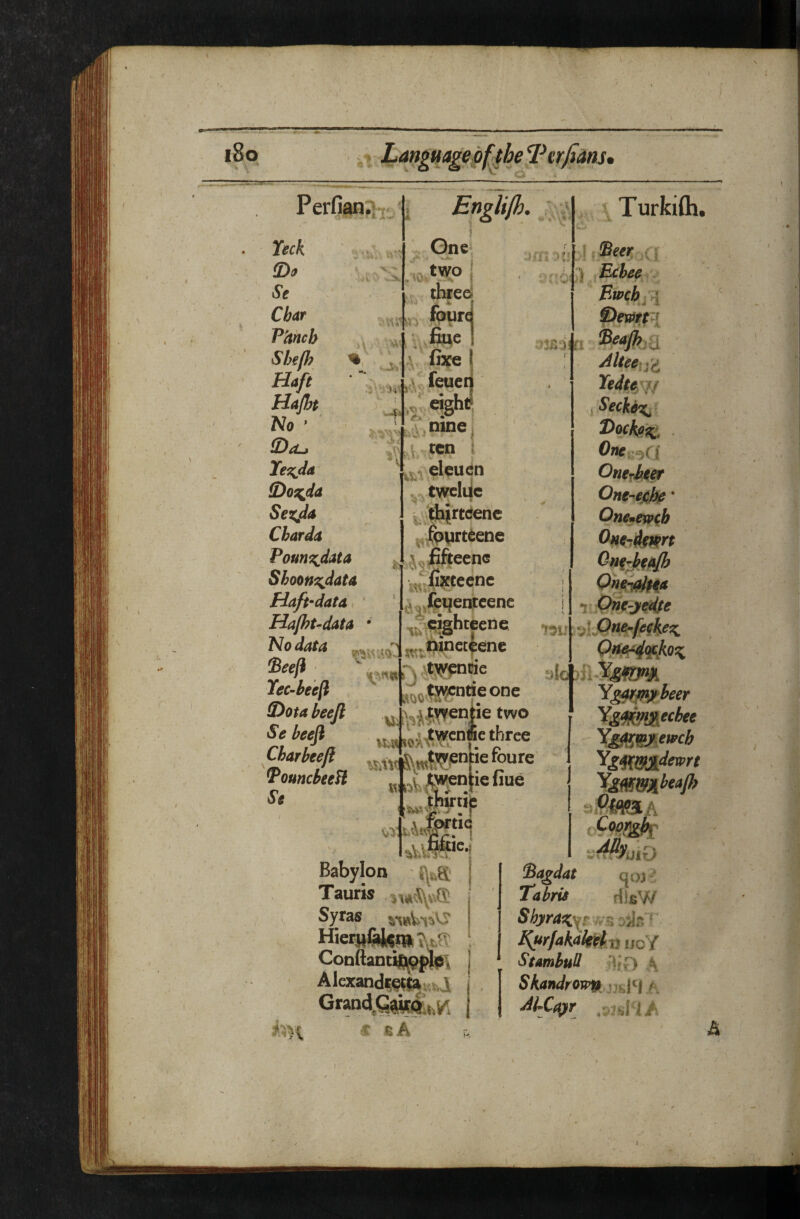 180 Language of the Persians.
Persian. English. Turkish.
Yeck One Beer
Do two Echee
Se three Ewch
Char foure Dewrt
Panch fiue Beash
Shesh sixe Altee
Haft seuen Yedte
Hasht eight Seckez
No nine Dockoz
Da ten One
Yezda eleuen One-beer
Dozda twelue One-eche
Sezda thirteene One-ewch
Charda fourteene One-dewrt
Pounzdata fifteene One-beash
Shoonzdata sixteene One-altea
Haft-data seuenteene One-yedte
Hasht-data eighteene One-seckez
No data nineteene One-dockoz
Beest twentie Ygarmy
Yec-beest twentie one Ygarmy beer
Dota beest twentie two Ygarmy echee
Se beest twentie three Ygarmy ewch
Charbeest twentie foure Ygarmy dewrt
Pouncbeest twentie fiue Ygarmy beash
Se thirtie
fortie
fiftie. Ally
Babylon Bagdat
Tauris Tabris
Syras Shyraz
Hierusalem Kursakaleel
Constantinople Stambull
Alexandretta Skandrown
Grand Cairo Al-Cayr
A